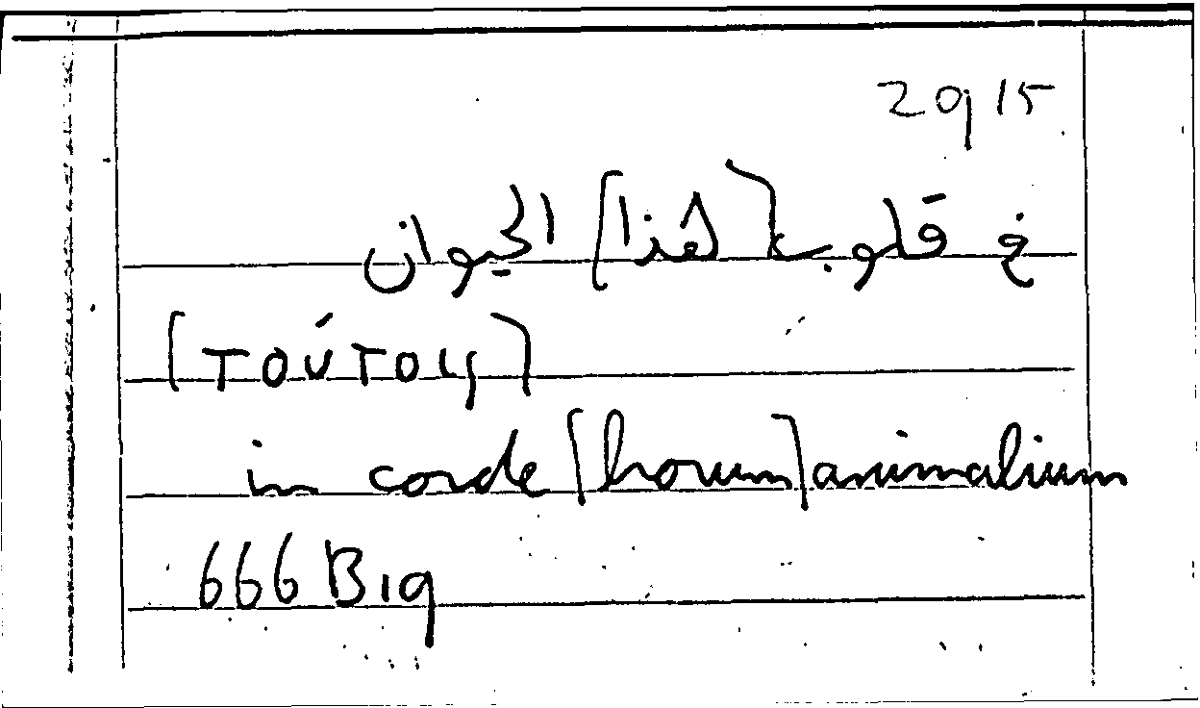 2915
في قلوب [هذا] الحيوان
[τούτοις]
in corde [horum] animalium
666 B19